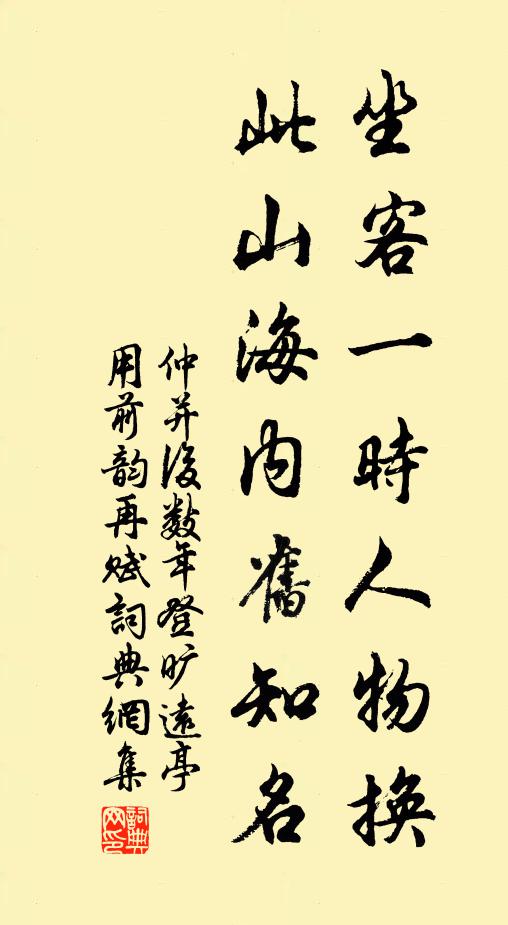 坐客一時人物換
此山海内舊知名
仲并後数年登旷遠亭
用前韵再赋詞典網集
詞典
网印